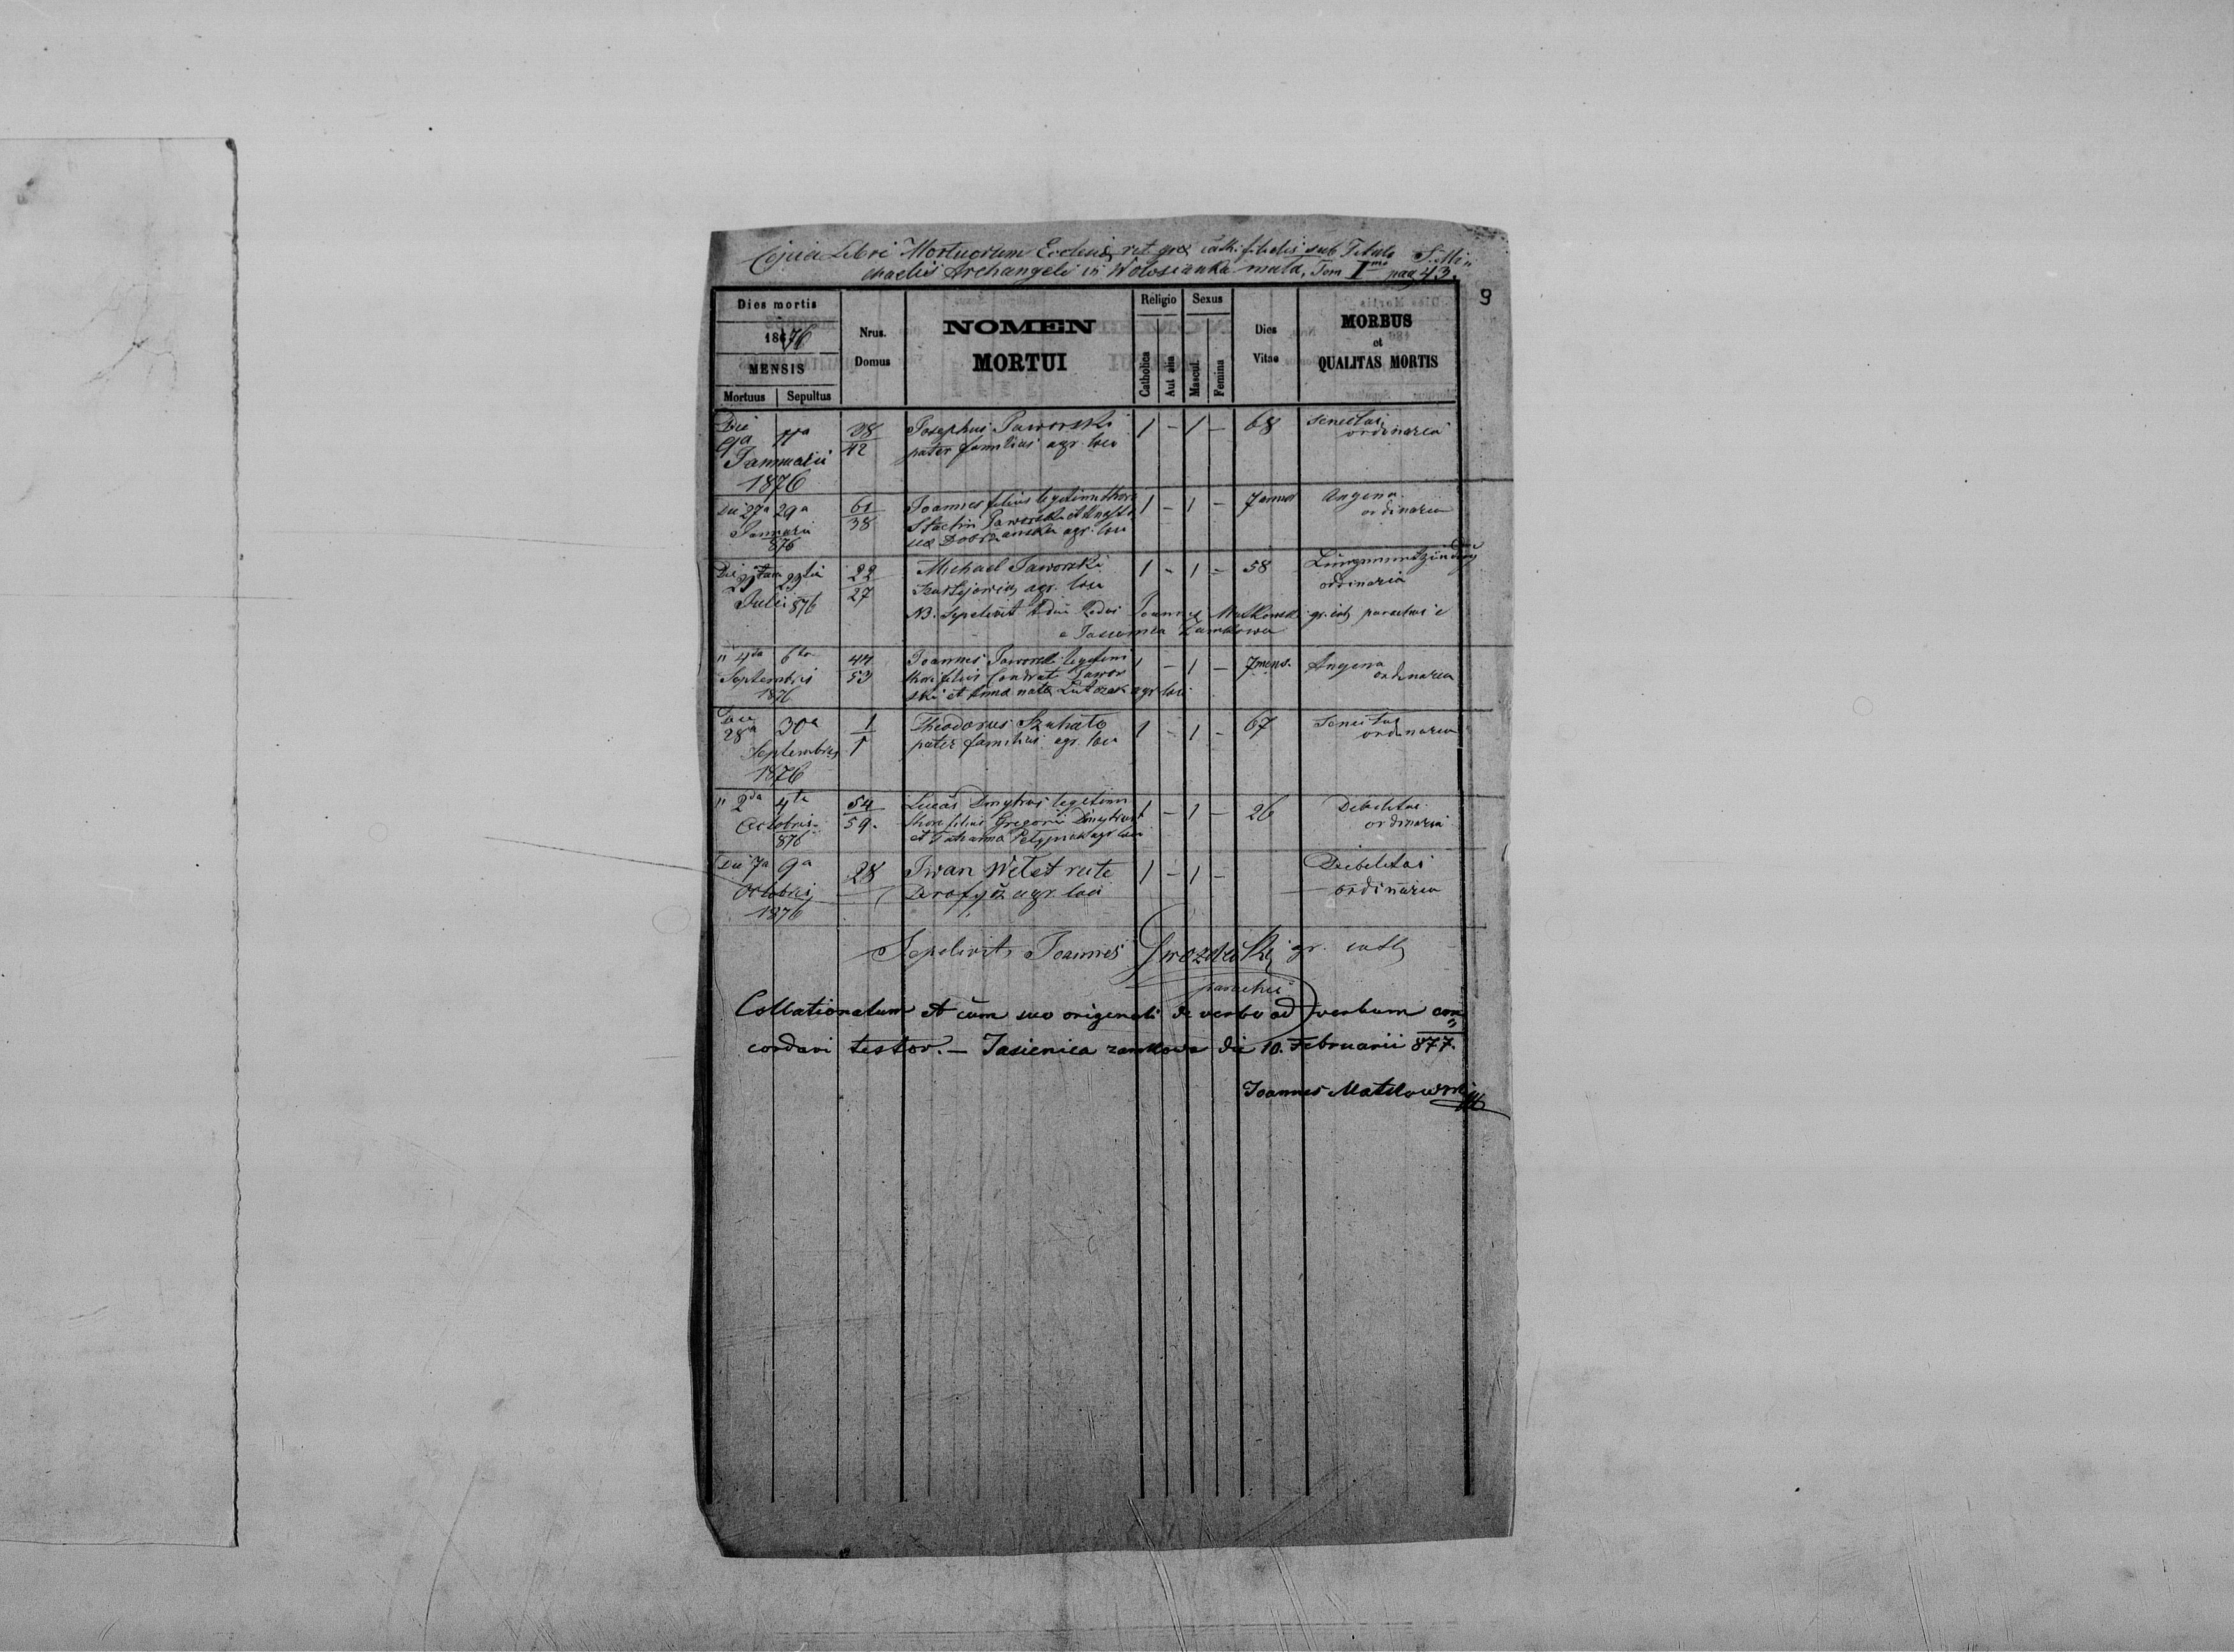 Copia Libri Mortuorum Ecclesiae rit. gr. cath. filialis sub Titulo S. Mi„
chaelis Archangeli in Wołosianka mała, Tom I^mo pag 43.
9
Dies mortis
1876
MENSIS
Mortuus Sepultus
Nrus. Domus
NOMEN
MORTUI
Religio
Catholica
Aut alia
Sexus
Mascul.
Femina
Dies
Vitae
MORBUS
et
QUALITAS MORTIS
Die 9a 11a 38/42 Josephus Jaworski 1 - 1 - 68 senectus
Januarii pater familias agr. loci ordinaria
1876
Die 27a 29a 61/38 Joannes filius legitimi thori 1 - 1 - 7 annor Angina
Januarii Jaworski et ordinaria
876 agr. loci
Die 22/27 Michael Jaworski 1 - 1 - 58
Julii 876 agr. loci ordinaria
NB. Sepelivit Joannes Matkowski gr. cath parochus
Jasienica Zamkowa
" 4ta 6ta 44/53 Joannes Jaworski legitimi 1 - 1 - 7 mens. Angina
Septembris thori filius Condrat Jawor ordinaria
1876 ski et Anna nata agr loci
Die 28a 30a 1/1 Theodorus Szuhało 1 - 1 - 67 Senectus
Septembris pater familias agr. loci ordinaria
1876
" 2da 4ta 54/59. Lucas Dmytrus legitimi 1 - 1 - 26 Debilitas
Octobris thori filius Gregorii ordinaria
876 et agr loci
Die 7a 9a 28 Iwan 1 - 1 - Debilitas
Octobris agr. loci ordinaria
1876
Sepelivit Joannes gr. cath
parochus
Collationatum et cum suo originali de verbo ad verbum con„
cordari testor. — Jasienica zamkowa die 10. Februarii 877.
Joannes Matkowski